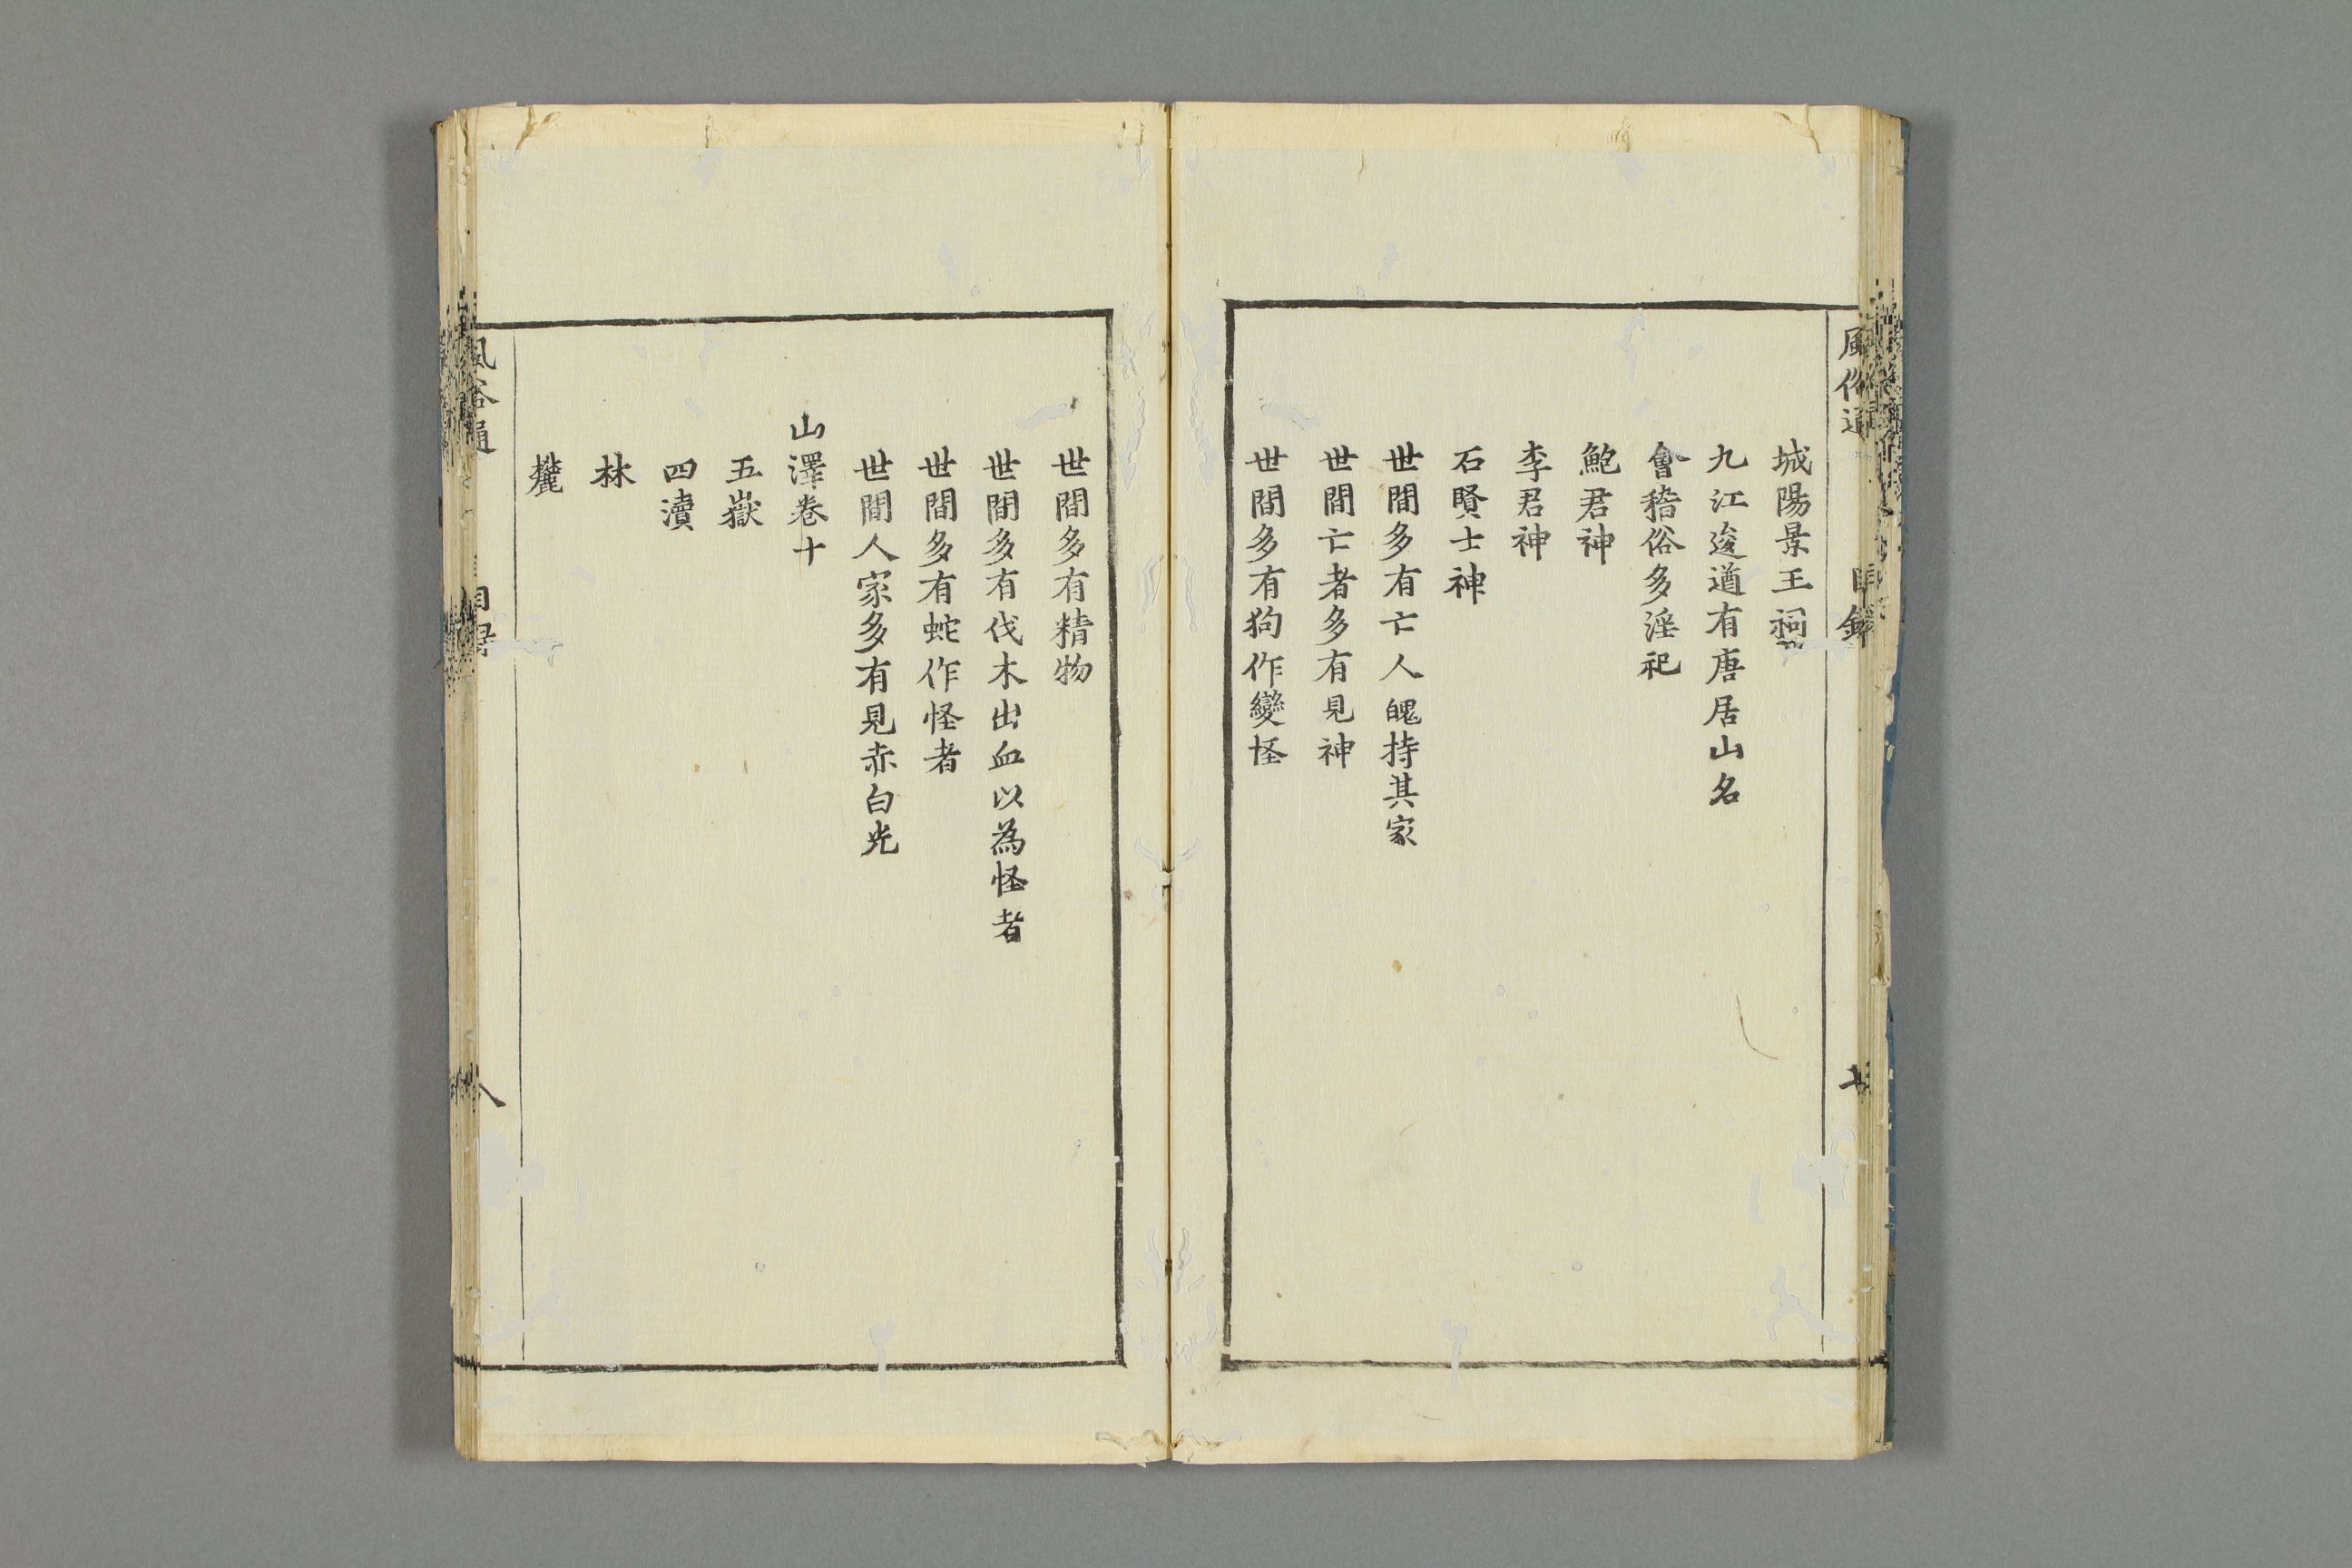 風俗通
目錄
七
城陽景王祠
九江逡遒有唐居山名
會稽俗多淫祀
鮑君神
李君神
石賢士神
世間多有亡人魄持其家
世間亡者多有見神
世間多有狗作變怪
世間多有精物
世間多有伐木出血以為怪者
世間多有蛇作怪者
世間人家多有見赤白光
山澤卷十
五嶽
四瀆
林
麓
風俗通
目錄
八